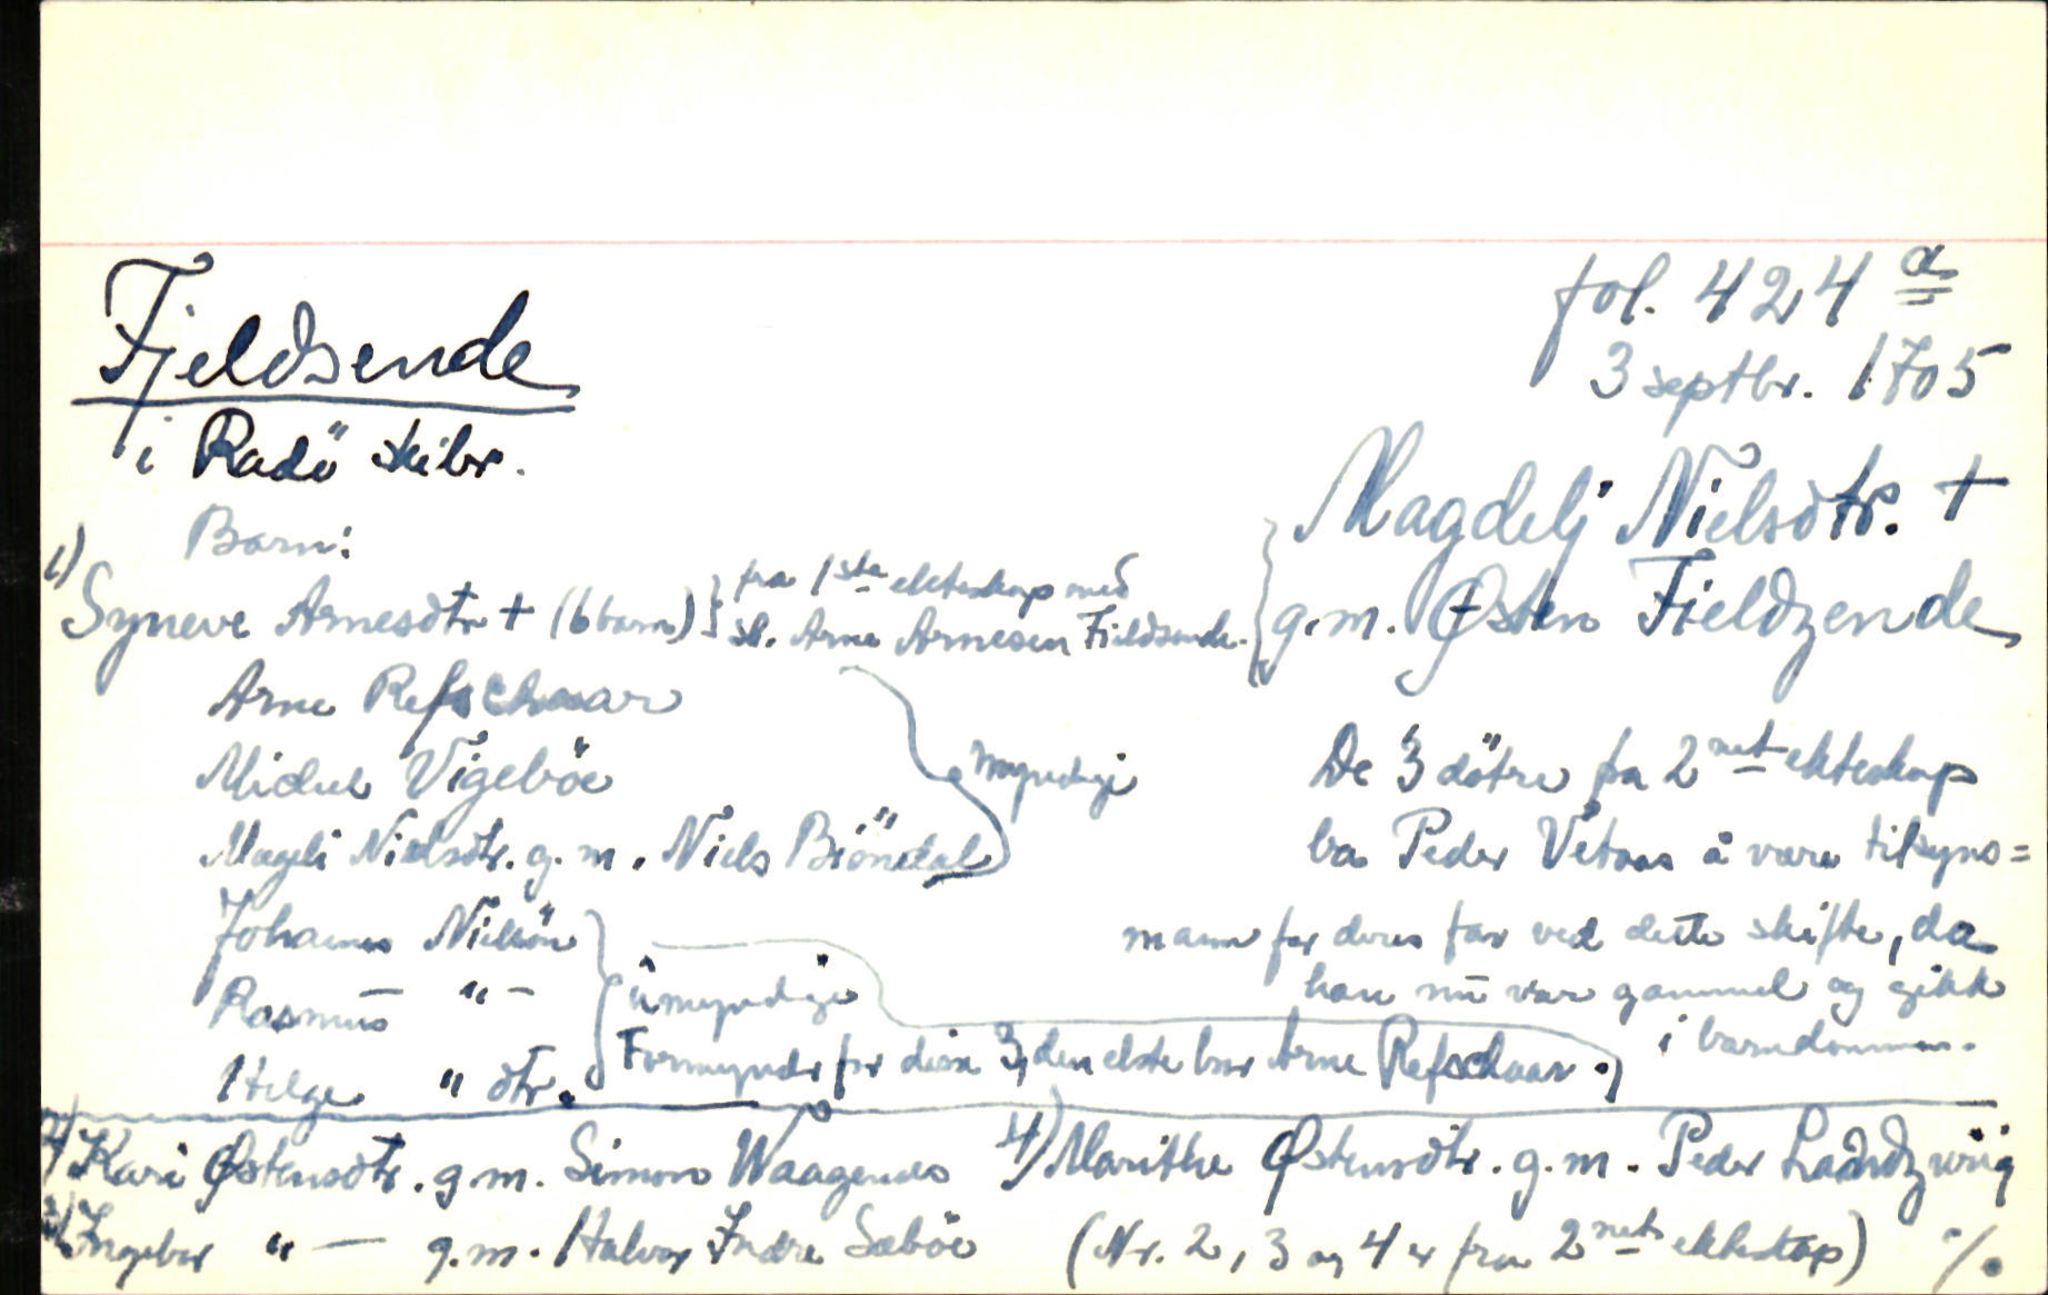 Fjeldsende
i Radö skibr.
fol. 424 a
3 septbr. 1705
Magdelj Nielsdtr. +
g.m. Østen Fieldzende
Barn:
1) Syneve Arnesdtr + (6 barn) fra 1ste ekteskap med
sl. Arne Arnesen Fieldsende.
Arne Refschaar
Mickel Vigeböe
Mageli Nielsdtr. g.m. Niels Biöndal
myndige
Johannes Nielsön
Rasmus — " —
Helge " dtr.
umyndige
Formynder for disse 3, den elste bror Arne Refschaar.
De 3 dötre fra 2net ekteskap
ba Peder Vetaas å være tilsyns=
mann for deres far ved dette skifte, da
han nu var gammel og gikk
i barndommen.
2) Kari Østensdtr. g.m. Simon Waagenes
3) Ingebor " — g.m. Halvor Indre Sæböe
4) Marithe Østensdtr. g.m. Peder
(Nr. 2, 3 og 4 er fra 2net ekteskap) ./.